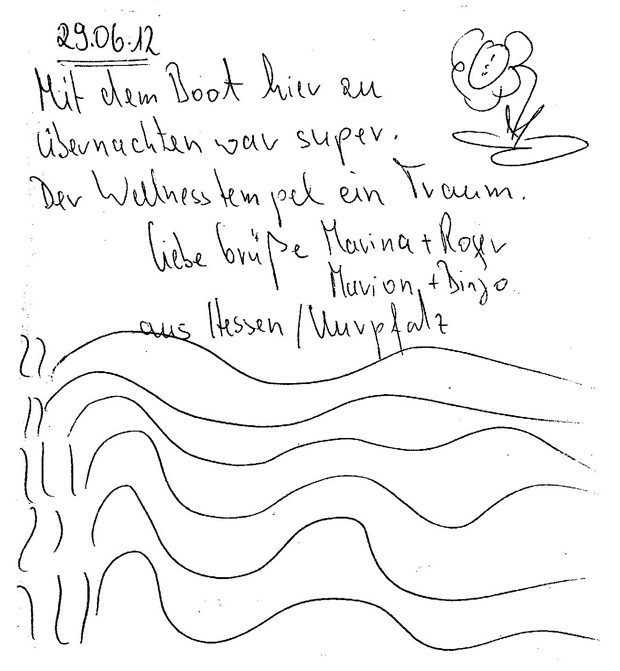 29.06.12
Mit dem Boot hier zu
übernachten war super.
Der Wellnesstempel ein Traum.
liebe Grüße Marina + Roger
Marion + Bingo
aus Hessen / Kurpfalz